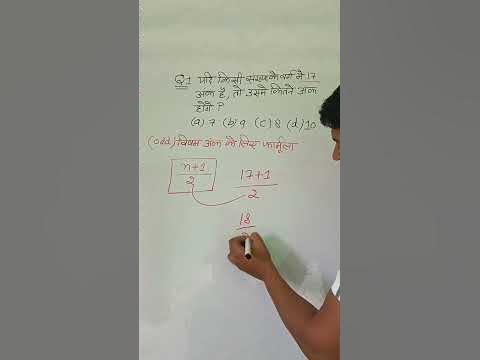 Q.1 यदि किसी संख्या के वर्ग में 17
अंक है, तो उसमे कितने अंक
होंगे ?
(a) 7 (b) 9 (c) 8 (d) 10
(odd) विषम अंक के लिए फार्मूला
n+1
2
17+1
2
18